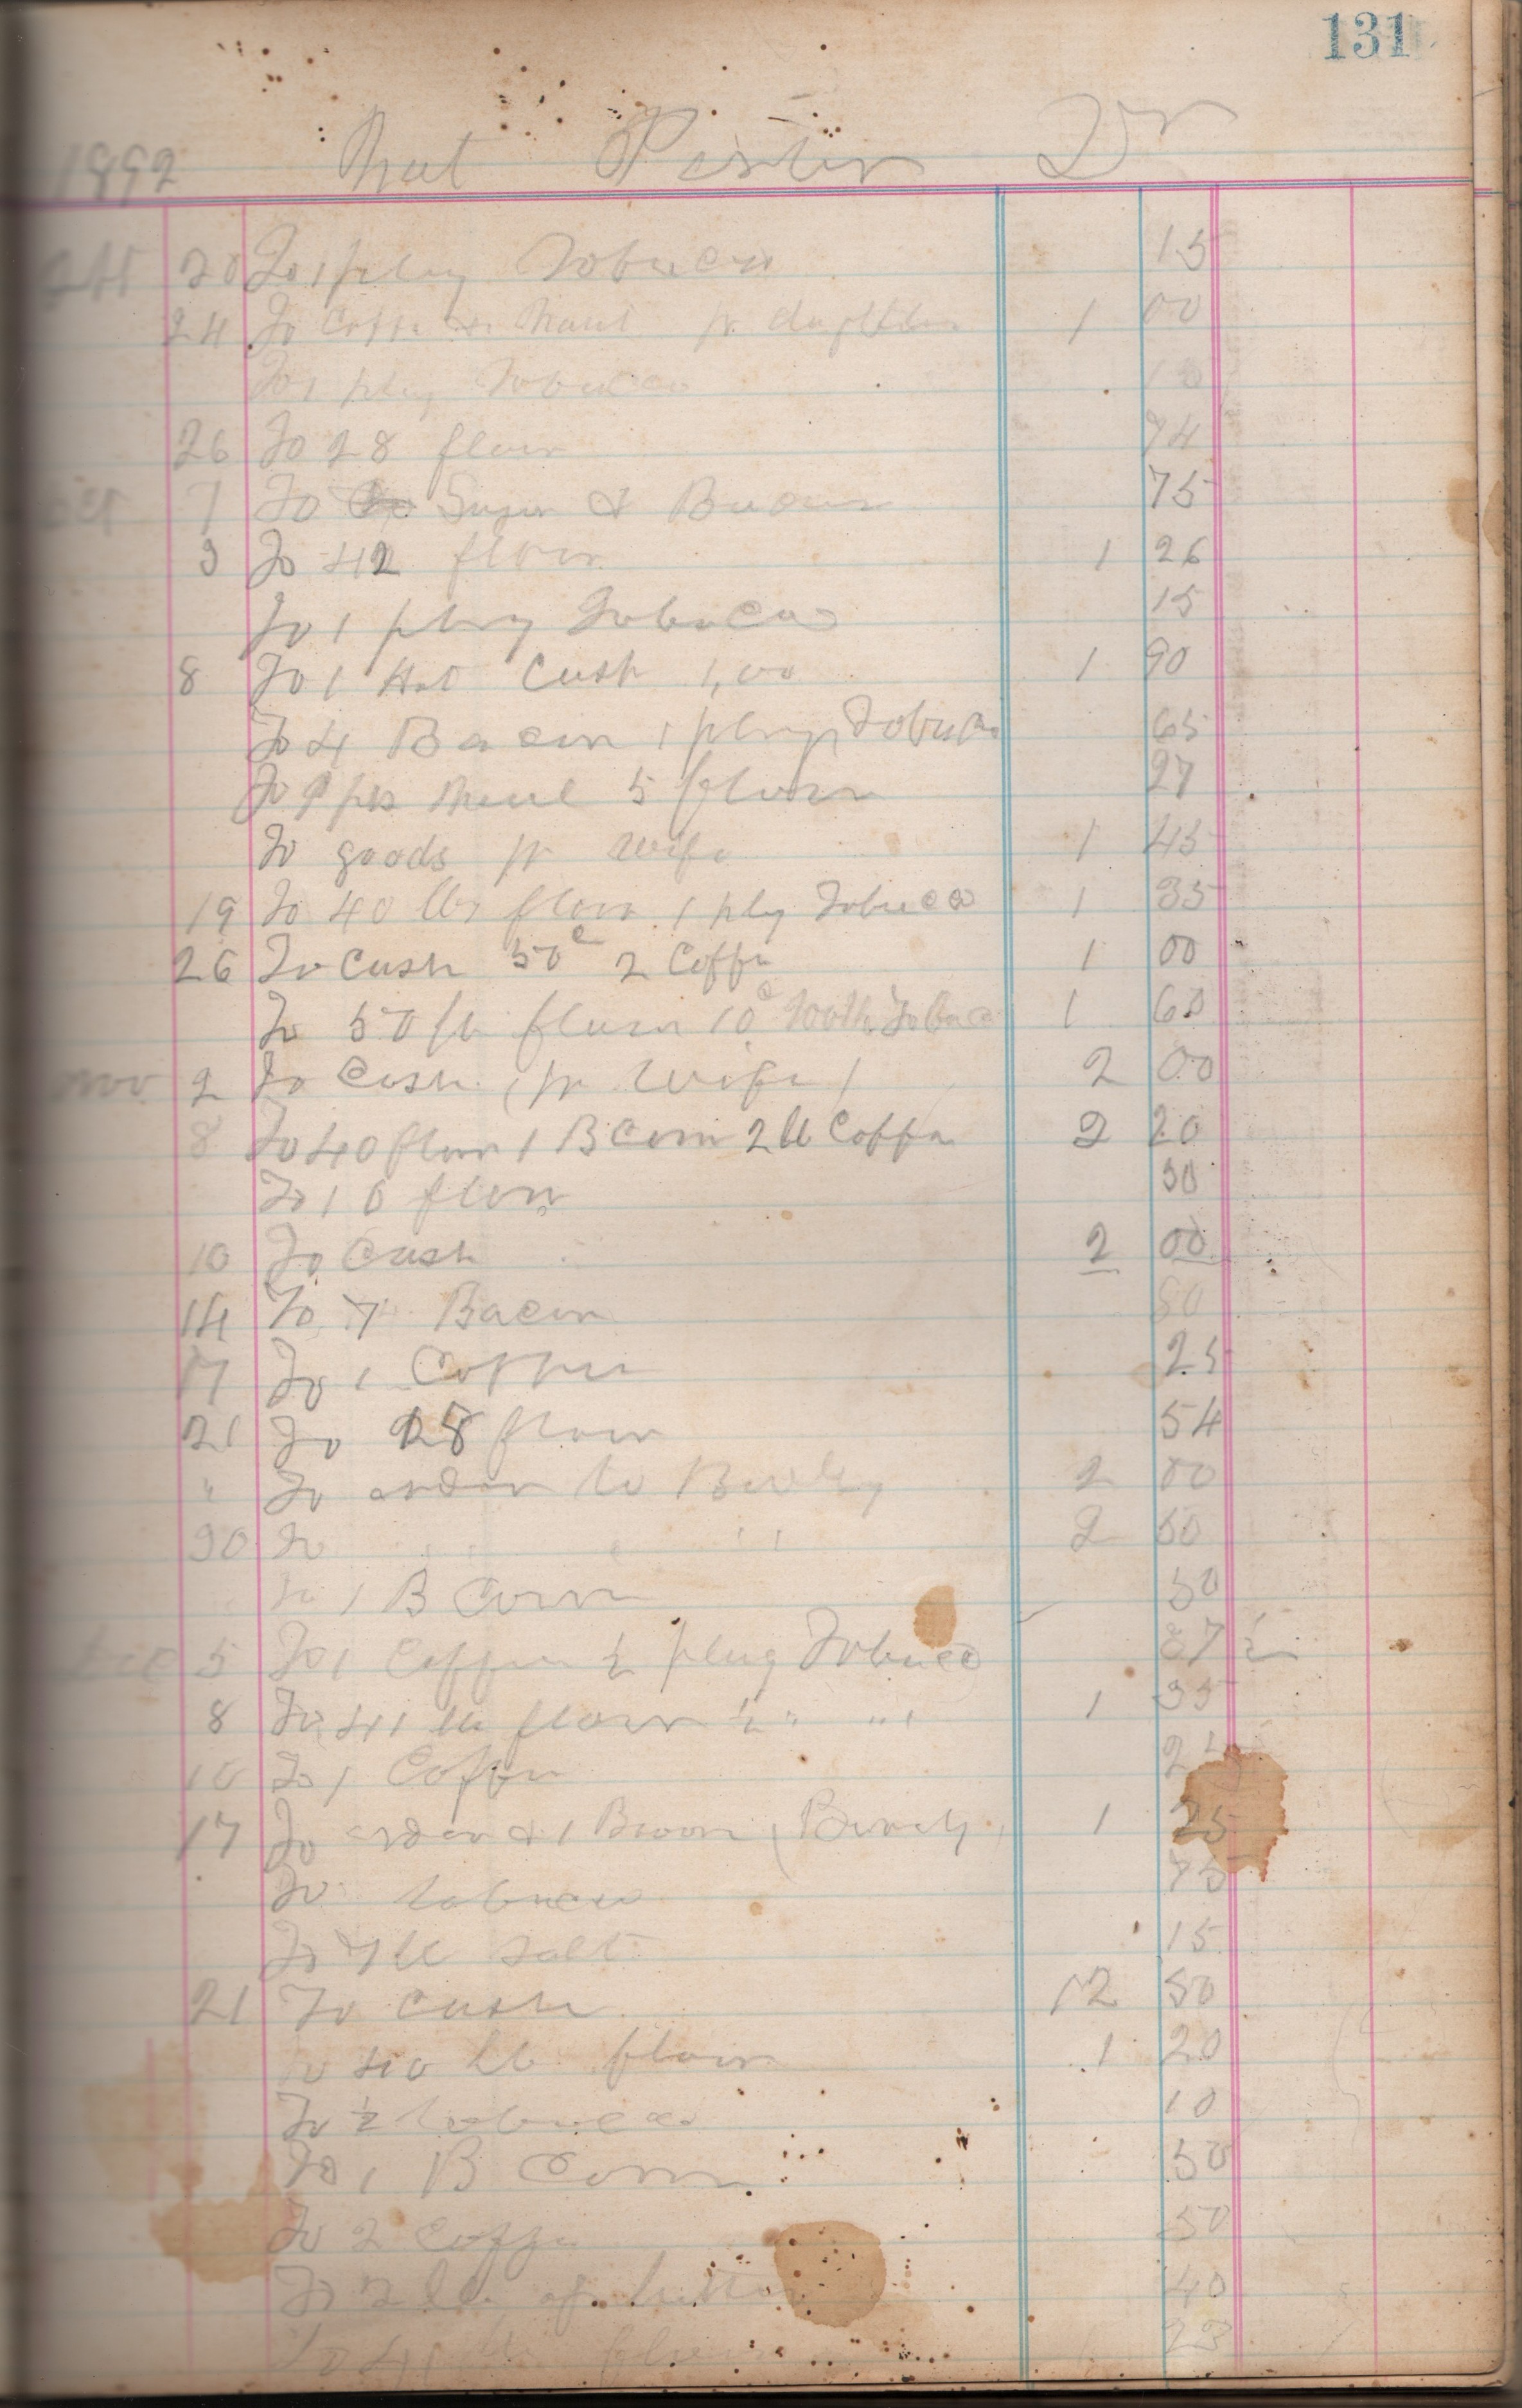 131
1892 Nat Dr
20 To 1 plug Tobacco 15
24 To Coffee & 1 00
To 1 plug Tobacco
26 To 28 flour 74
7 To Sugar & Bacon 75
9 To 42 flour 1 26
To 1 plug Tobacco 15
8 To 1 Hat Cash 1,00 1 90
To 4 Bacon 1 plug Tobacco 65
To 5 flour 27
To goods pr Wife 1 45
19 To 40 lbs flour 1 plg Tobacco 1 35
26 To Cash 50c 2 Coffe 1 00
To 50 lb flour 10c Tobacco 1 60
Nov 2 To Cash (pr Wife) 2 00
8 To 40 flour 1 B Corn 2 lb Coffe 2 20
To 10 flour 30
10 To Cash 2 00
14 To 7 Bacon 80
17 To 1 Coffee 25
21 To 18 flour 54
" To order to 2 00
30 To " " 2 50
To 1 B Corn 50
Dec 5 To 1 Coffee ½ plug Tobacco 37 ½
8 To 41 lb flour ½ " " 1 35
10 To 1 Coffe 25
17 To order & 1 1 25
To tobacco 75
To 7 lb salt 15
21 To Cash 12 50
To 40 lb flour 1 20
To ½ tobacco 10
To 1 B Corn 50
To 2 Coffe 50
To 2 lb of 40
To 41 lb flour 23